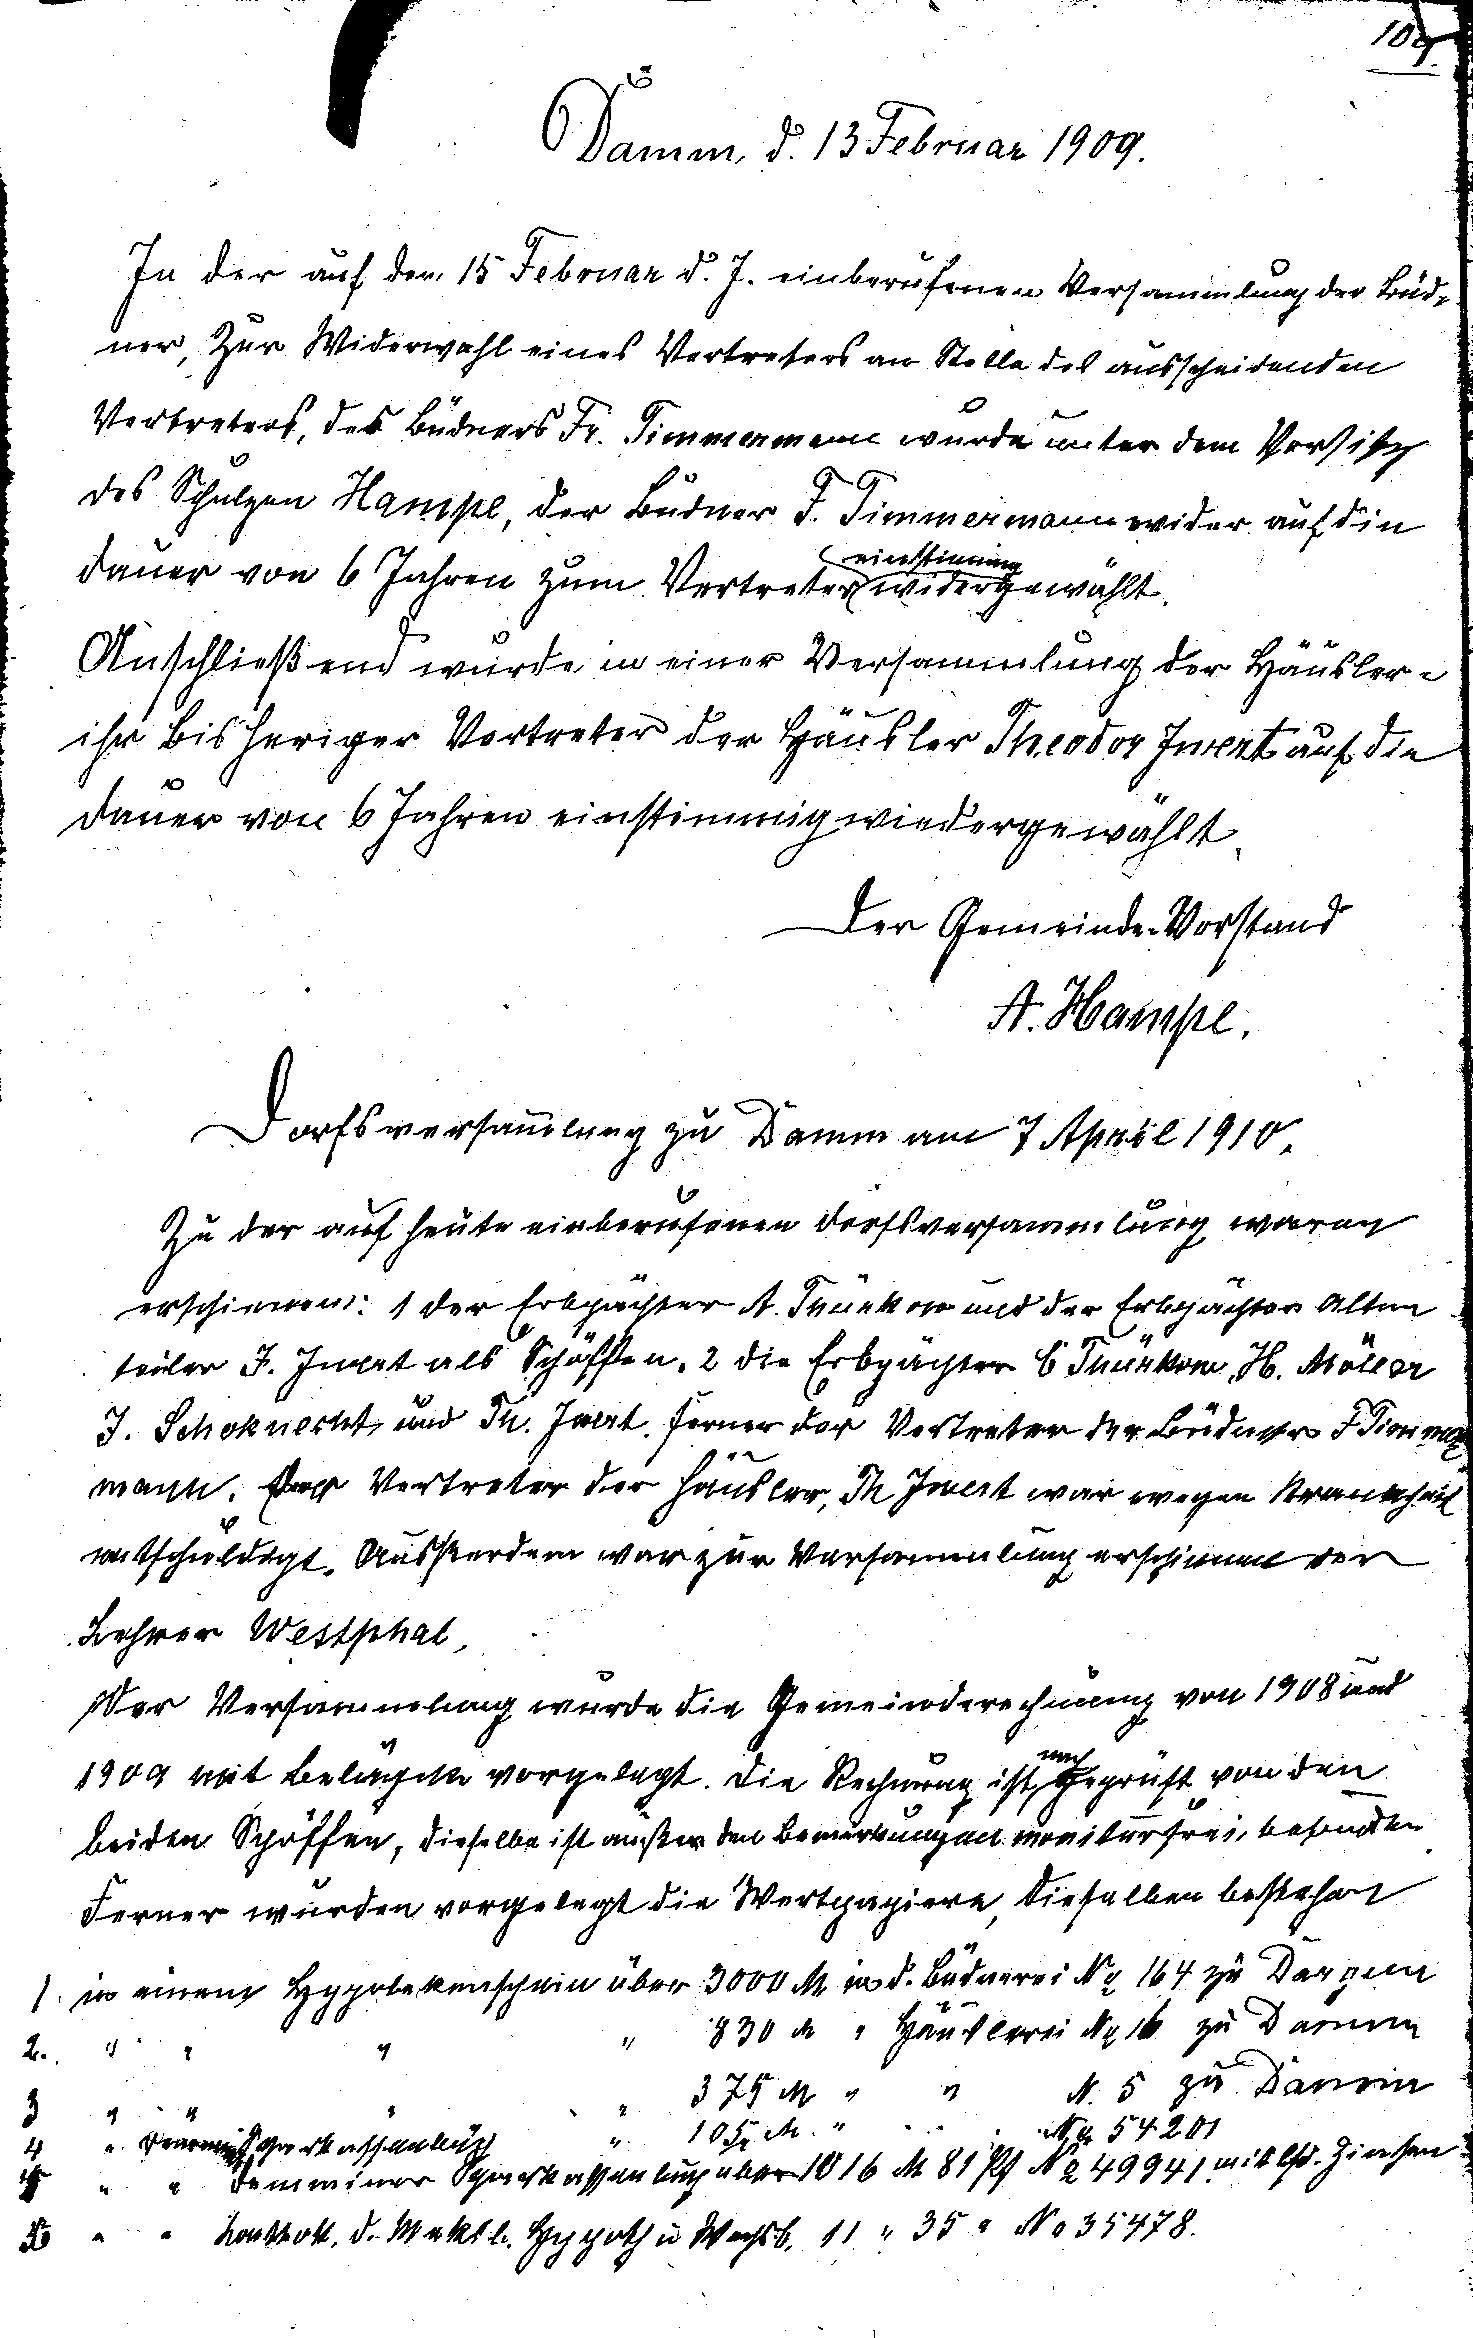 109.
Damm, d. 13 Februar 1909.
In der auf den 15 Februar d. J. einberufenen Versammlung der Büd-
ner, Zur Widerwahl eines Vertreters an Stelle des ausscheidenden
Vertreters, des Büdners Fr. Timmermann wurde unter dem Vorsitz
des Schulzen Hampe, der Büdner F. Timmermann wider auf die
Dauer von 6 Jahren zum Vertreter einstimmig widergewählt.
Anschließend wurde in einer Versammlung der Häusler-
ihr bisheriger Vertreter der Häusler Theodor Jwert auf die
Dauer von 6 Jahren einstimmig wiedergewählt.
Der Gemeinde-Vorstand
A. Hampe.
Dorfsversamlung zu Damm am 7 April 1910.
Zu der auf heute einberufenen Dorfsversammlung waren
erschienen: 1 der Erbpächter A. und der Erbpächter Alten
teiler J. Jwert als Schöffen. 2 die Erbpächter C H. Möller
J. Schoknecht und Th. Jwert. ferner der Vertreter der Büdner F Timmer
mann. Der Vertreter der Häusler, Th Jwert war wegen Krankheit
entschuldigt. Ausserdem war zur Versammlung erschienen der
Lehrer Westphal,
Der Versammelung wurde die Gemeinderechnung von 1908 und
1909 mit Belägen vorgelegt. Die Rechnung ist geprüft von den
beiden Schöffen, dieselbe ist außer den Bemerkungen moniturfrei befunden
Ferner wurden vorgelegt die Wertpapiere, dieselben bestehen
1. in einem Hypotekenschein über 3000 M in d. Büdnerei No 164 zu Dargun
2. " " " " 830 M " Häuslerei No 16 zu Damm
3 " " " " 375 M " " N. 5 zu Damm
4 " Sparkassenbuch " 105 M. " No 54201
" " Demminer Sparkassenbuch über 1016 M 81 Pf No 49941 mit lfd. Zinsen
" " d. Meklb. Hypoth u Wechslb. 11 " 35 " No 35478.